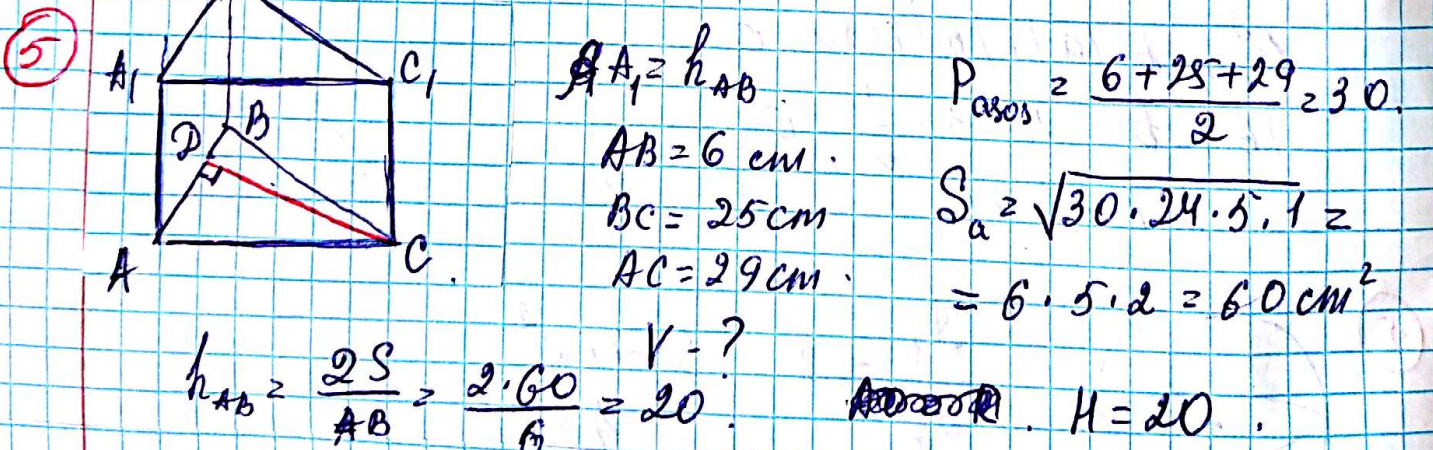 5
A₁ C₁
D B
A C.
AA₁ = h_AB.
AB = 6 cm.
BC = 25 cm
AC = 29 cm.
V - ?
P_asos = (6+25+29)/2 = 30.
S_a = √(30·24·5·1) =
= 6·5·2 = 60 cm²
h_AB = 2S/AB = 2·60/6 = 20.
H = 20.